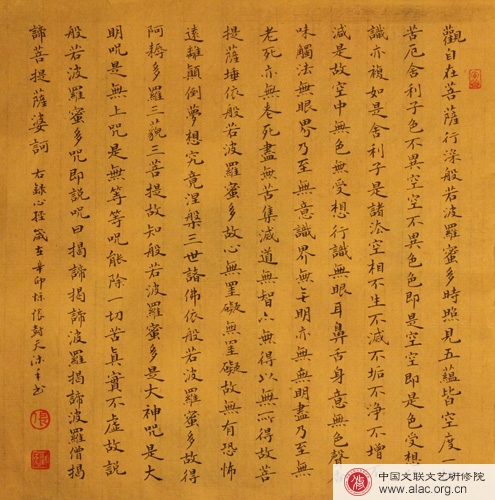 觀自在菩薩行深般若波羅蜜多時照見五蘊皆空度一
苦厄舍利子色不異空空不異色色即是空空即是色受想
識亦複如是舍利子是諸法空相不生不滅不垢不淨不增
減是故空中無色無受想行識無眼耳鼻舌身意無色聲
味觸法無眼界乃至無意識界無無明亦無無明盡乃至無
老死亦無老死盡無苦集滅道無智亦無得以無所得故菩
提薩埵依般若波羅蜜多故心無罣礙無罣礙故無有恐怖
遠離顛倒夢想究竟涅槃三世諸佛依般若波羅蜜多故得
阿耨多羅三藐三菩提故知般若波羅蜜多是大神咒是大
明咒是無上咒是無等等咒能除一切苦真實不虛故說
般若波羅蜜多咒即說咒曰揭諦揭諦波羅揭諦波羅僧揭
諦菩提薩婆訶 右錄心經歲在辛卯 張 書
中国文联文艺研修院
www.alac.org.cn